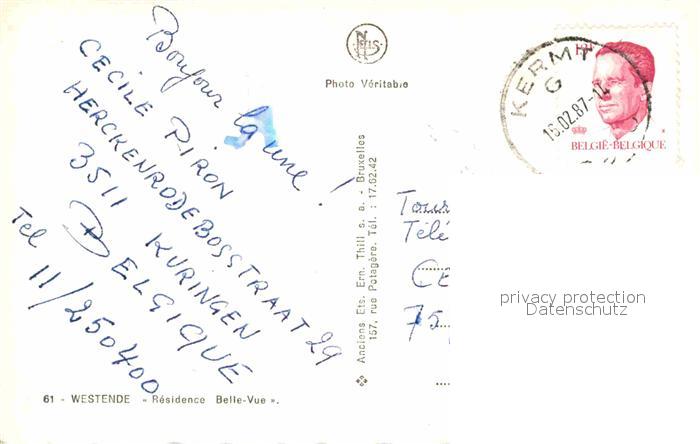 Bonjour la une !
CECILE PIRON
HERCKENRODEBOSSTRAAT 29
3511 KURINGEN
BELGIQUE
Tel 11/250400
61 - WESTENDE « Résidence Belle-Vue ».
Photo Véritable
Anciens Ets. Ern. Thill s. a. - Bruxelles
157, rue Potagère. Tél. : 17.62.42
KERMT
G
16.02.87-
BELGIË-BELGIQUE
Tour
Télé
Ce
75
privacy protection
Datenschutz